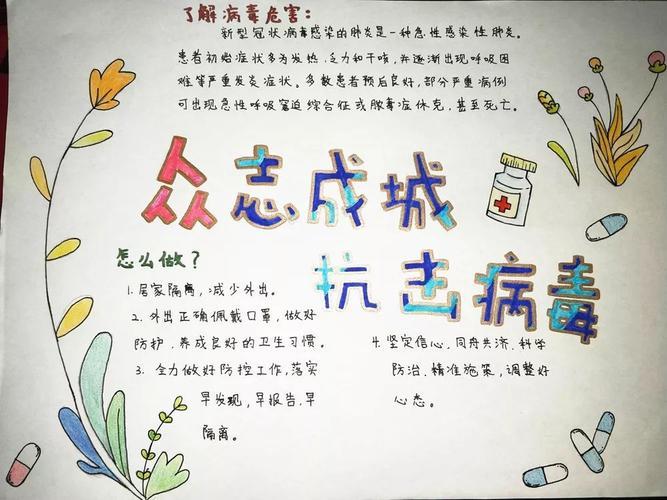 了解病毒危害：
新型冠状病毒感染的肺炎是一种急性感染性肺炎。
患者初始症状多为发热、乏力和干咳，并逐渐出现呼吸困
难等严重发炎症状。多数患者预后良好，部分严重病例
可出现急性呼吸窘迫综合征或脓毒症休克，甚至死亡。
众志成城
抗击病毒
怎么做？
1.居家隔离，减少外出。
2.外出正确佩戴口罩，做好
防护，养成良好的卫生习惯。
3.全力做好防控工作，落实
早发现，早报告，早
隔离。
4.坚定信心，同舟共济，科学
防治，精准施策，调整好
心态。